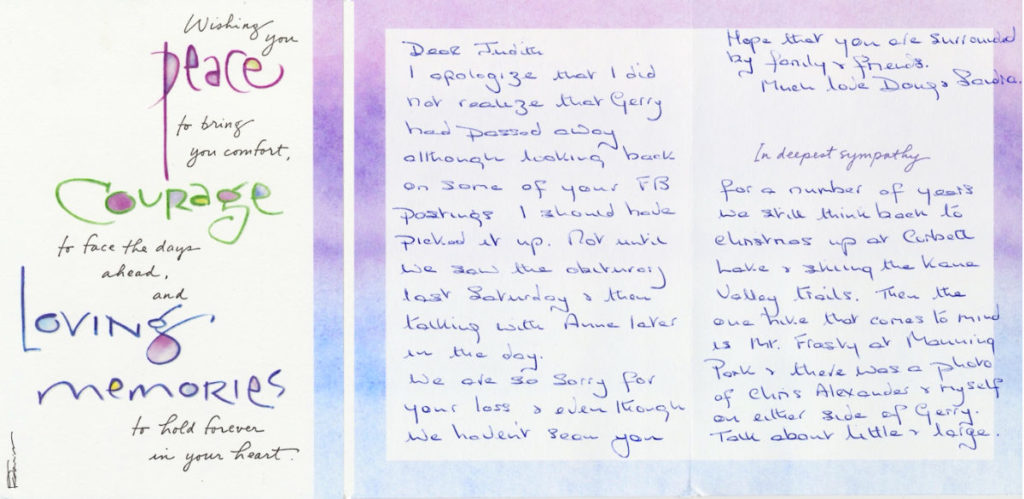 Wishing
you
peace
to bring
you comfort,
courage
to face the days
ahead,
and
Loving
memories
to hold forever
in your heart.
Dear Judith
I apologize that I did
not realize that Gerry
had passed away
although looking back
on some of your FB
postings I should have
picked it up. Not until
we saw the obituary
last Saturday & then
talking with Anne later
in the day.
We are so sorry for
your loss & even though
we haven't seen you
Hope that you are surrounded
by family & friends.
Much love Doug & Sandra.
In deepest sympathy
for a number of years
we still think back to
christmas up at Corbett
Lake & skiing the Kane
Valley trails. Then the
one hike that comes to mind
is Mt. Frosty at Manning
Park & there was a photo
of Chris Alexander & myself
on either side of Gerry.
Talk about little & large.